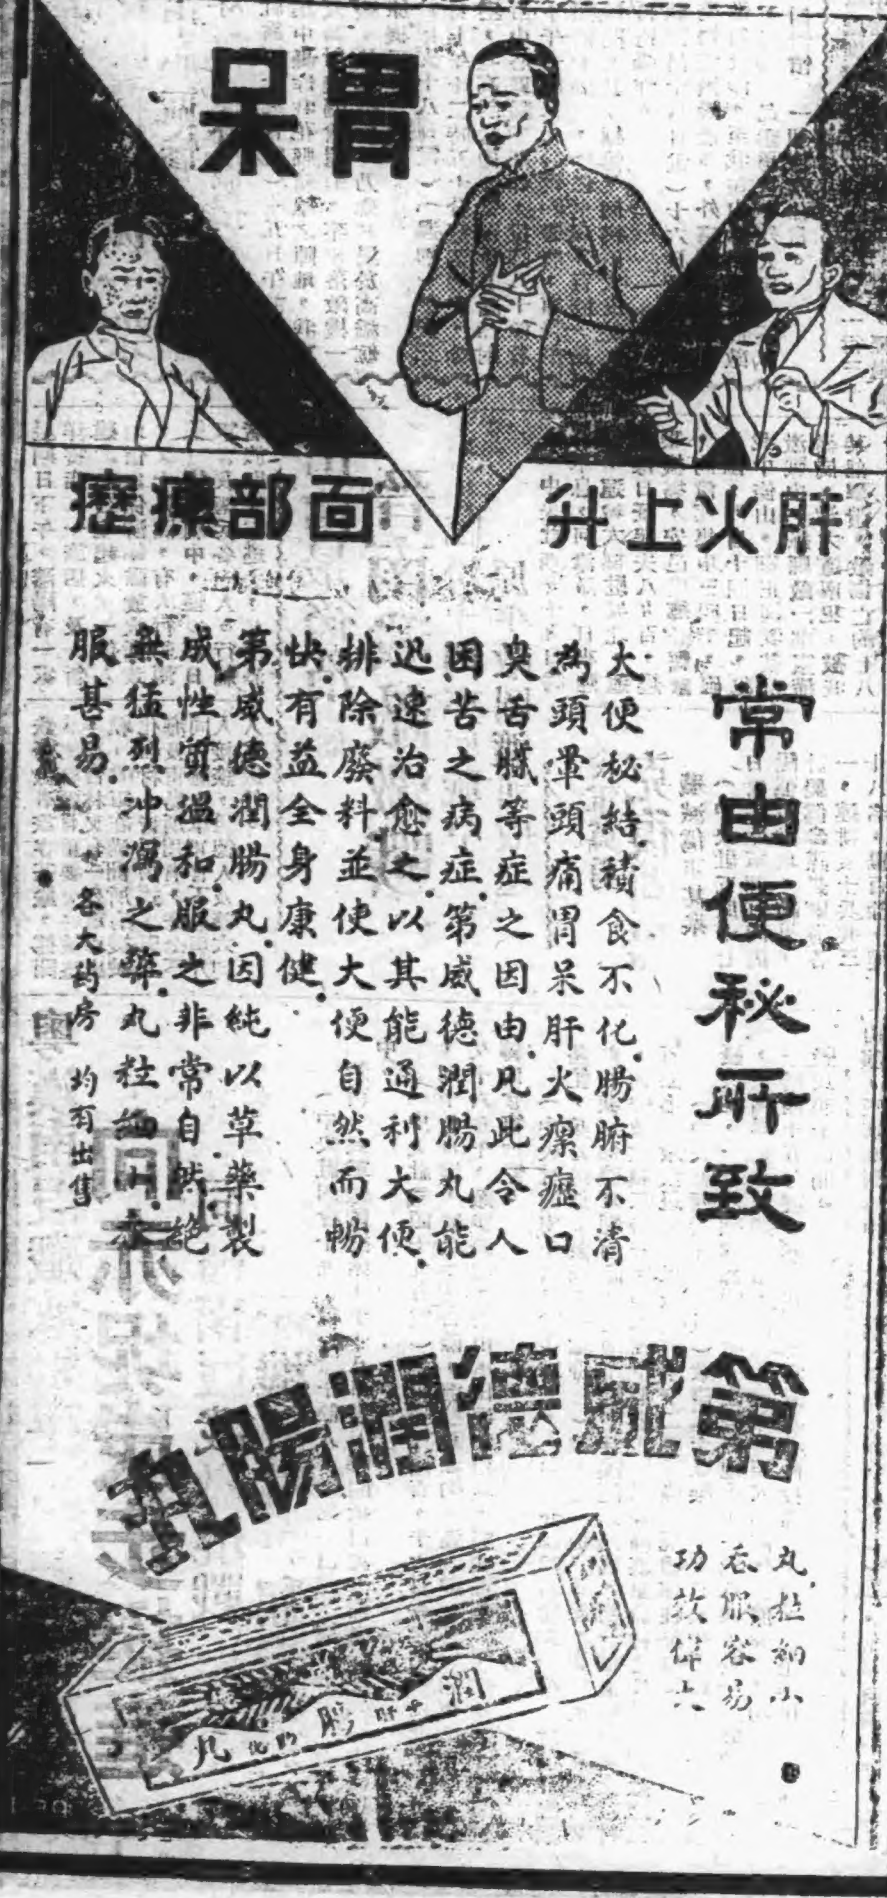 胃呆
肝火上升
面部瘰癧
常由便秘所致
大便秘結.積食不化.腸腑不清
為頭暈頭痛胃呆肝火瘰癧口
臭舌膩等症之因由.凡此令人
困苦之病症.第威德潤腸丸能
迅速治愈之.以其能通利大便.
排除廢料並使大便自然而暢
快.有益全身康健.
第威德潤腸丸.因純以草藥製
成.性質温和.服之非常自然絶
無猛烈冲瀉之弊.丸粒細小.亦
服甚易.
各大药房 均有出售
第威德潤腸丸
丸粒細小
吞服容易
功效偉大
潤腸丸